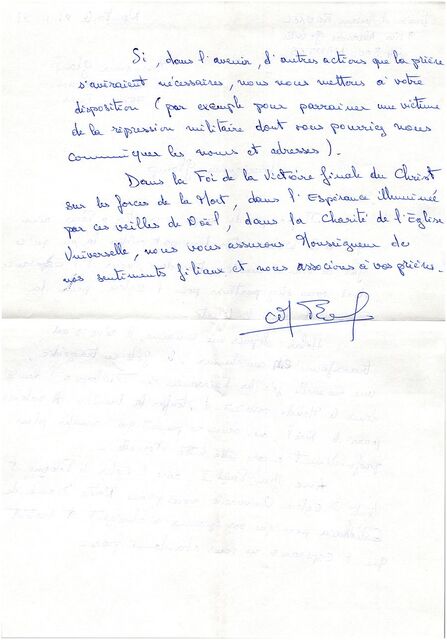 Si, dans l'avenir, d'autres actions que la prière
s'avéraient nécessaires, nous nous mettons à votre
disposition (par exemple pour parrainer une victime
de la répression militaire dont vous pourriez nous
communiquer les noms et adresses).
Dans la Foi de la Victoire finale du Christ
sur les forces de la Mort, dans l'Espérance illuminée
par ces veilles de Noël, dans la Charité de l'Eglise
Universelle, nous vous assurons Monseigneur de
nos sentiments filiaux et nous associons à vos prières.